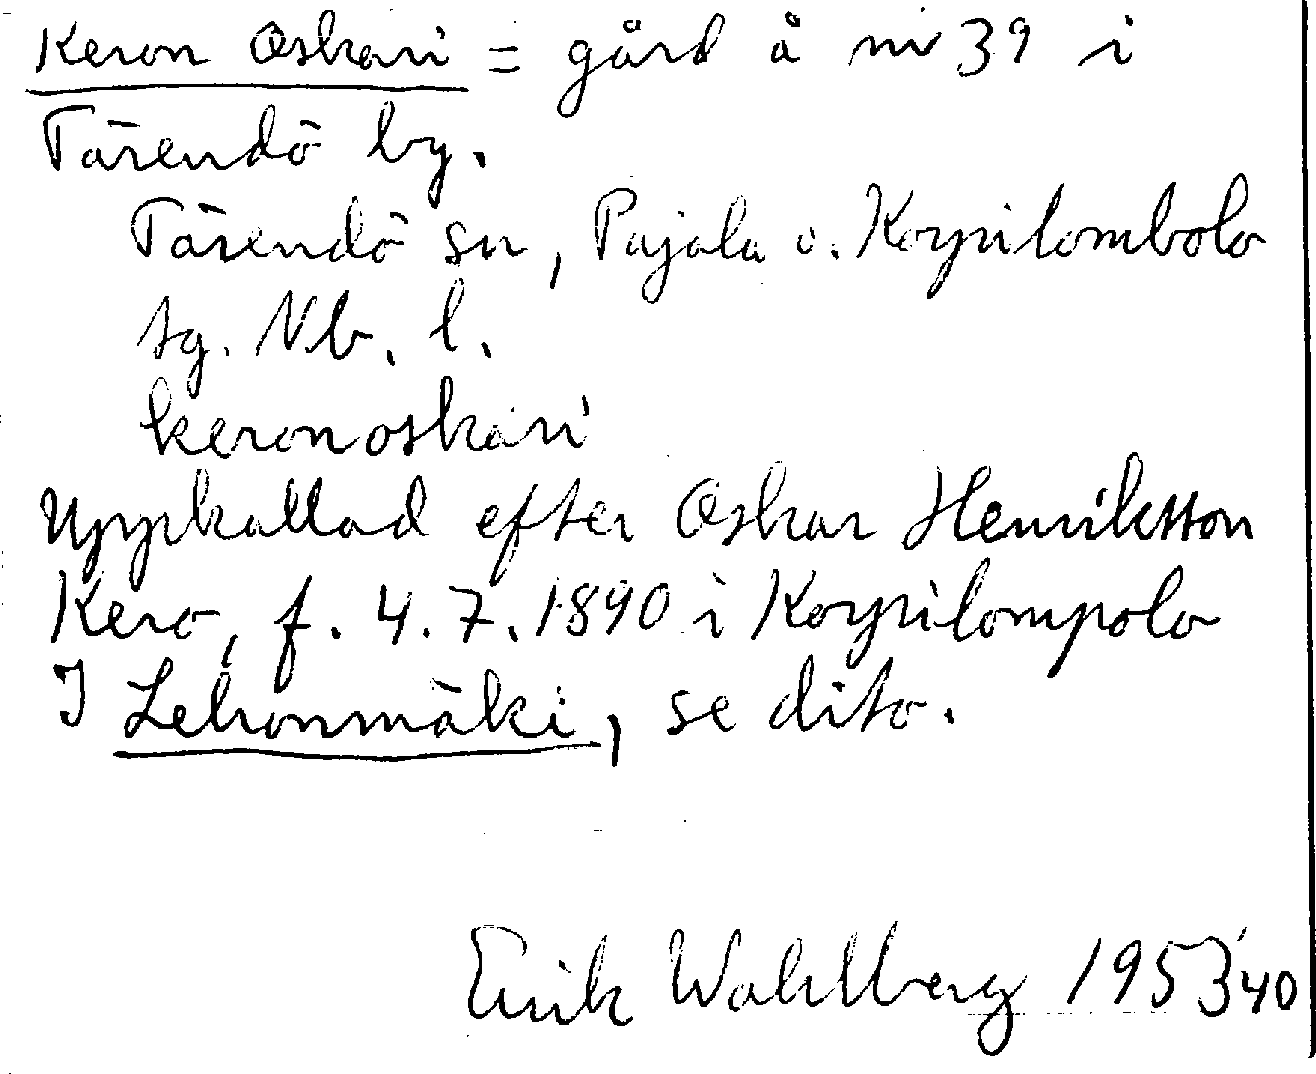 Keron Oskari = gård å nr 39 i
Tärendö by.
Tärendö sn, Pajala o. Korpilombolo
tg. Nb. l.
keronoskari
Uppkallad efter Oskar Henriksson
Kero, f. 4.7.1890 i Korpilompolo
I Lehonmäki, se dito.
Erik Wahlberg 1953 '40